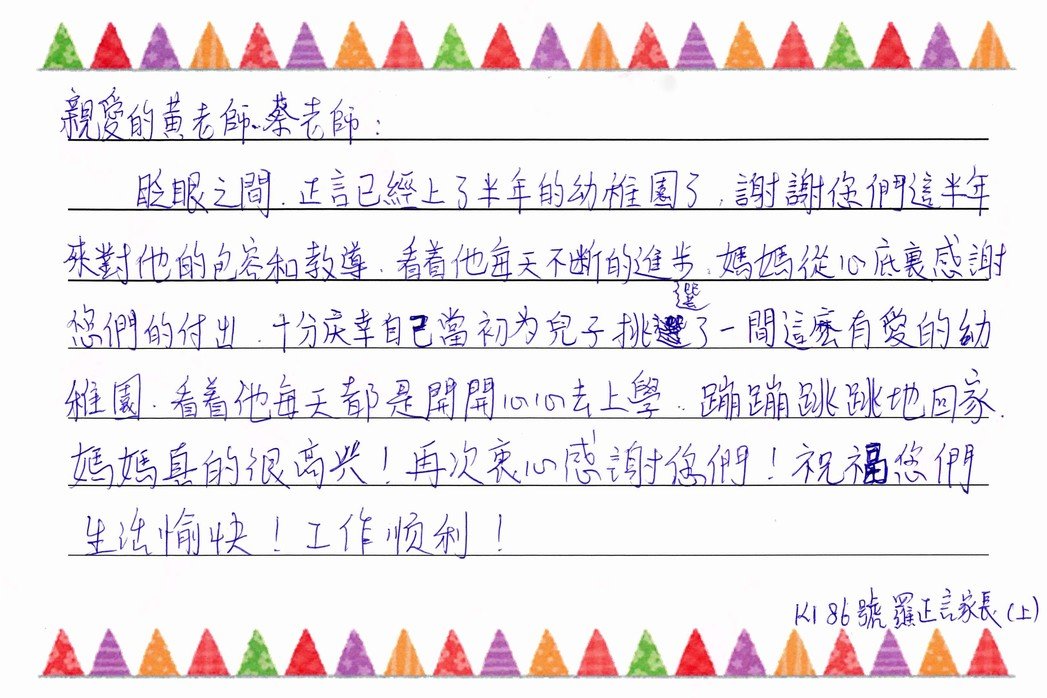 親愛的黃老師、蔡老師：
眨眼之間，正言已經上了半年的幼稚園了，謝謝您們這半年
來對他的包容和教導，看着他每天不斷的進步，媽媽從心底裏感謝
您們的付出，十分庆幸自己當初为兒子挑選了一間這麽有愛的幼
稚園，看着他每天都是開開心心去上學，蹦蹦跳跳地回家，
媽媽真的很高兴！再次衷心感謝您們！祝福您們
生活愉快！工作順利！
K1 86號 羅正言家長(上)